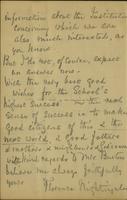 information about the Institution
concerning which we are
also much interested, as
you know
But I do not, of course, expect
an answer now -
With the very best good
wishes for the School's
highest success in the next
sense of success is to make
good citizens of this & the
next world, & good fathers
& mothers & neighbours &
with kind regards to Mrs
believe me ever faithfully
yours
Florence Nightingale